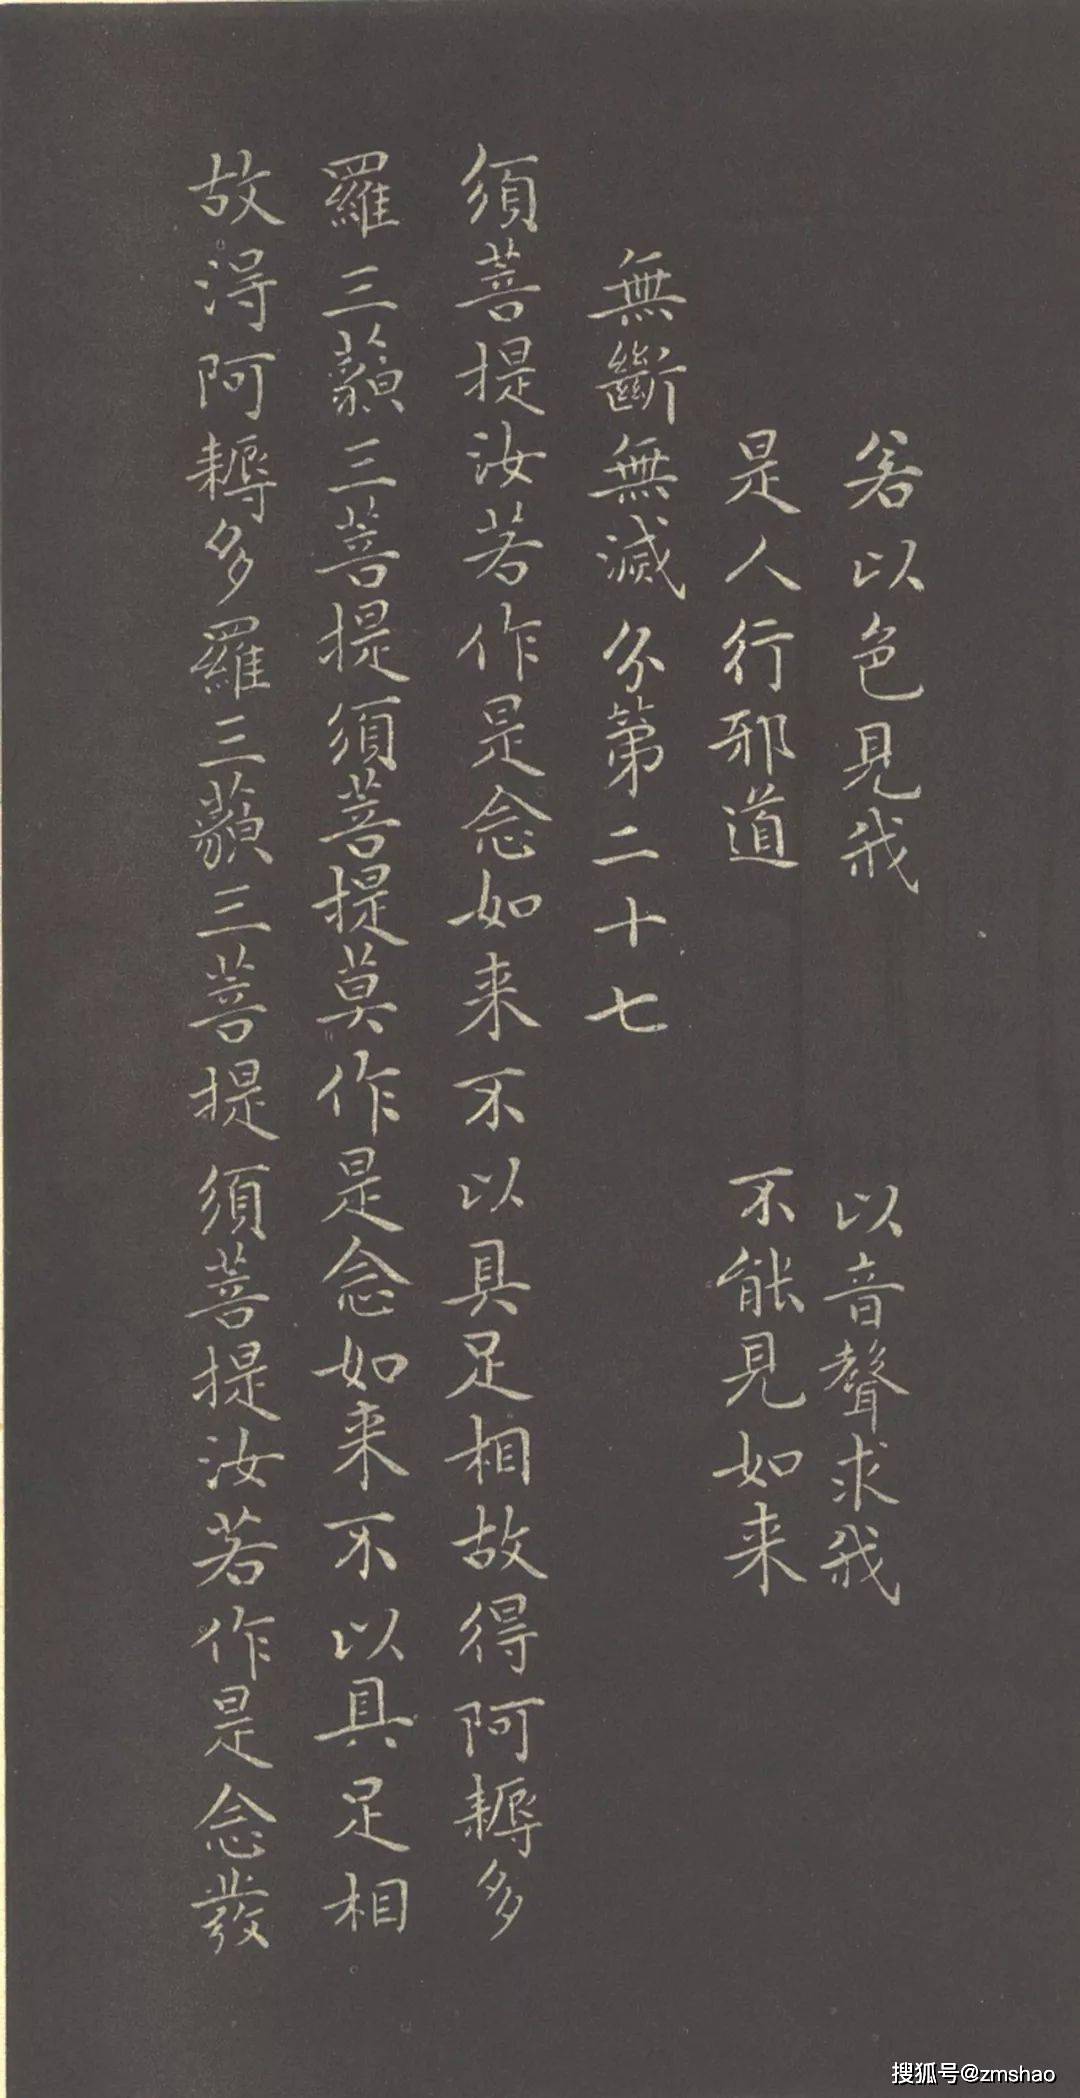 若以色見我　以音聲求我
是人行邪道　不能見如来
無斷無滅分第二十七
須菩提汝若作是念如来不以具足相故得阿耨多
羅三藐三菩提須菩提莫作是念如来不以具足相
故得阿耨多羅三藐三菩提須菩提汝若作是念發
搜狐号@zmshao